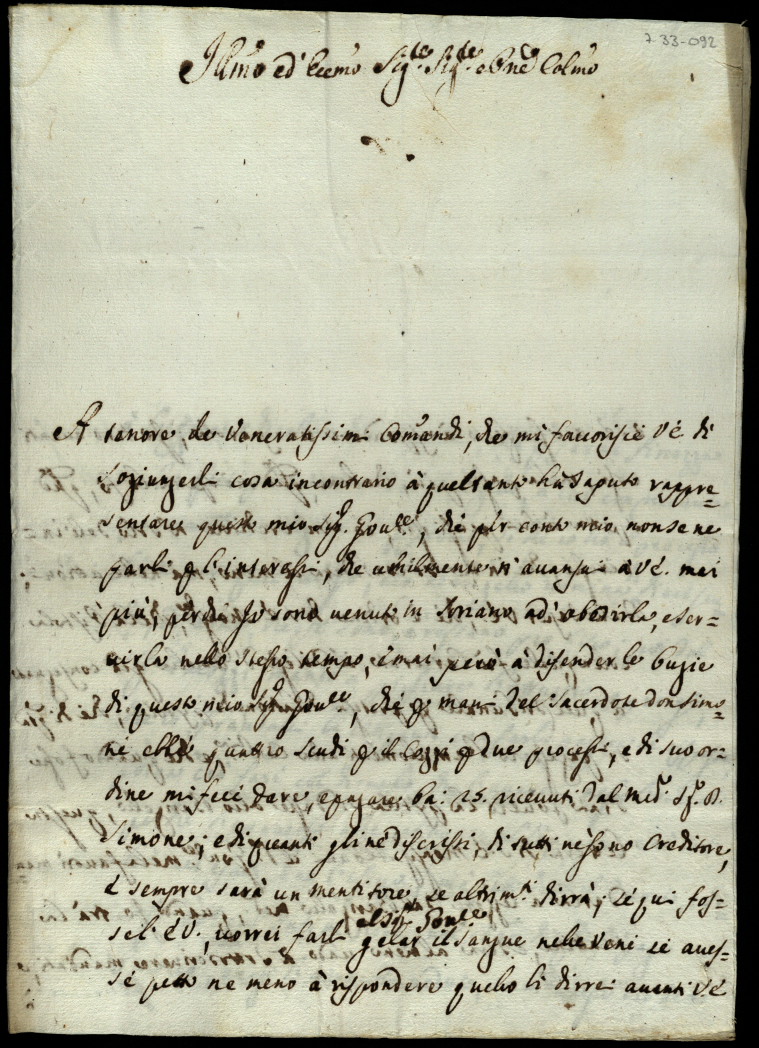 7 33-092
Illmo ed Eccmo Sigre Sigre e Pne Colmo
A tenore de Veneratissimi Comandi, che mi favorisce V.E. di
sogiungerli cosa incontrario à quel tanto hà saputo rappre=
sentare questo mio Sig. Goure, che per conto mio non se ne
parli p l'interessi, che umilmente n'avansai à V.E. mai
più, perche Io sono venuto in Soriano ad' obedirla, e ser=
virla nello stesso tempo, e mai però à difender le bugie
di questo mio Sig. Goure, che p mani del Sacerdote don Simo=
ne ebbi quattro scudi p il Cozzi p due processi, e di suo or=
dine mi feci dare, e pagare ba: 25. ricevuti dal med. Sig. D.
Simone; e di quanti gline descrissi, di tutti ne sono Creditore,
e sempre sarà un mentitore, se altrimti dirrà; se qui fos=
se l'E.V., vorrei farli
al Sigr Goure
gelar il sangue nelle veni se aves=
se petto ne meno à rispondere quello li dirrei avanti V.E.